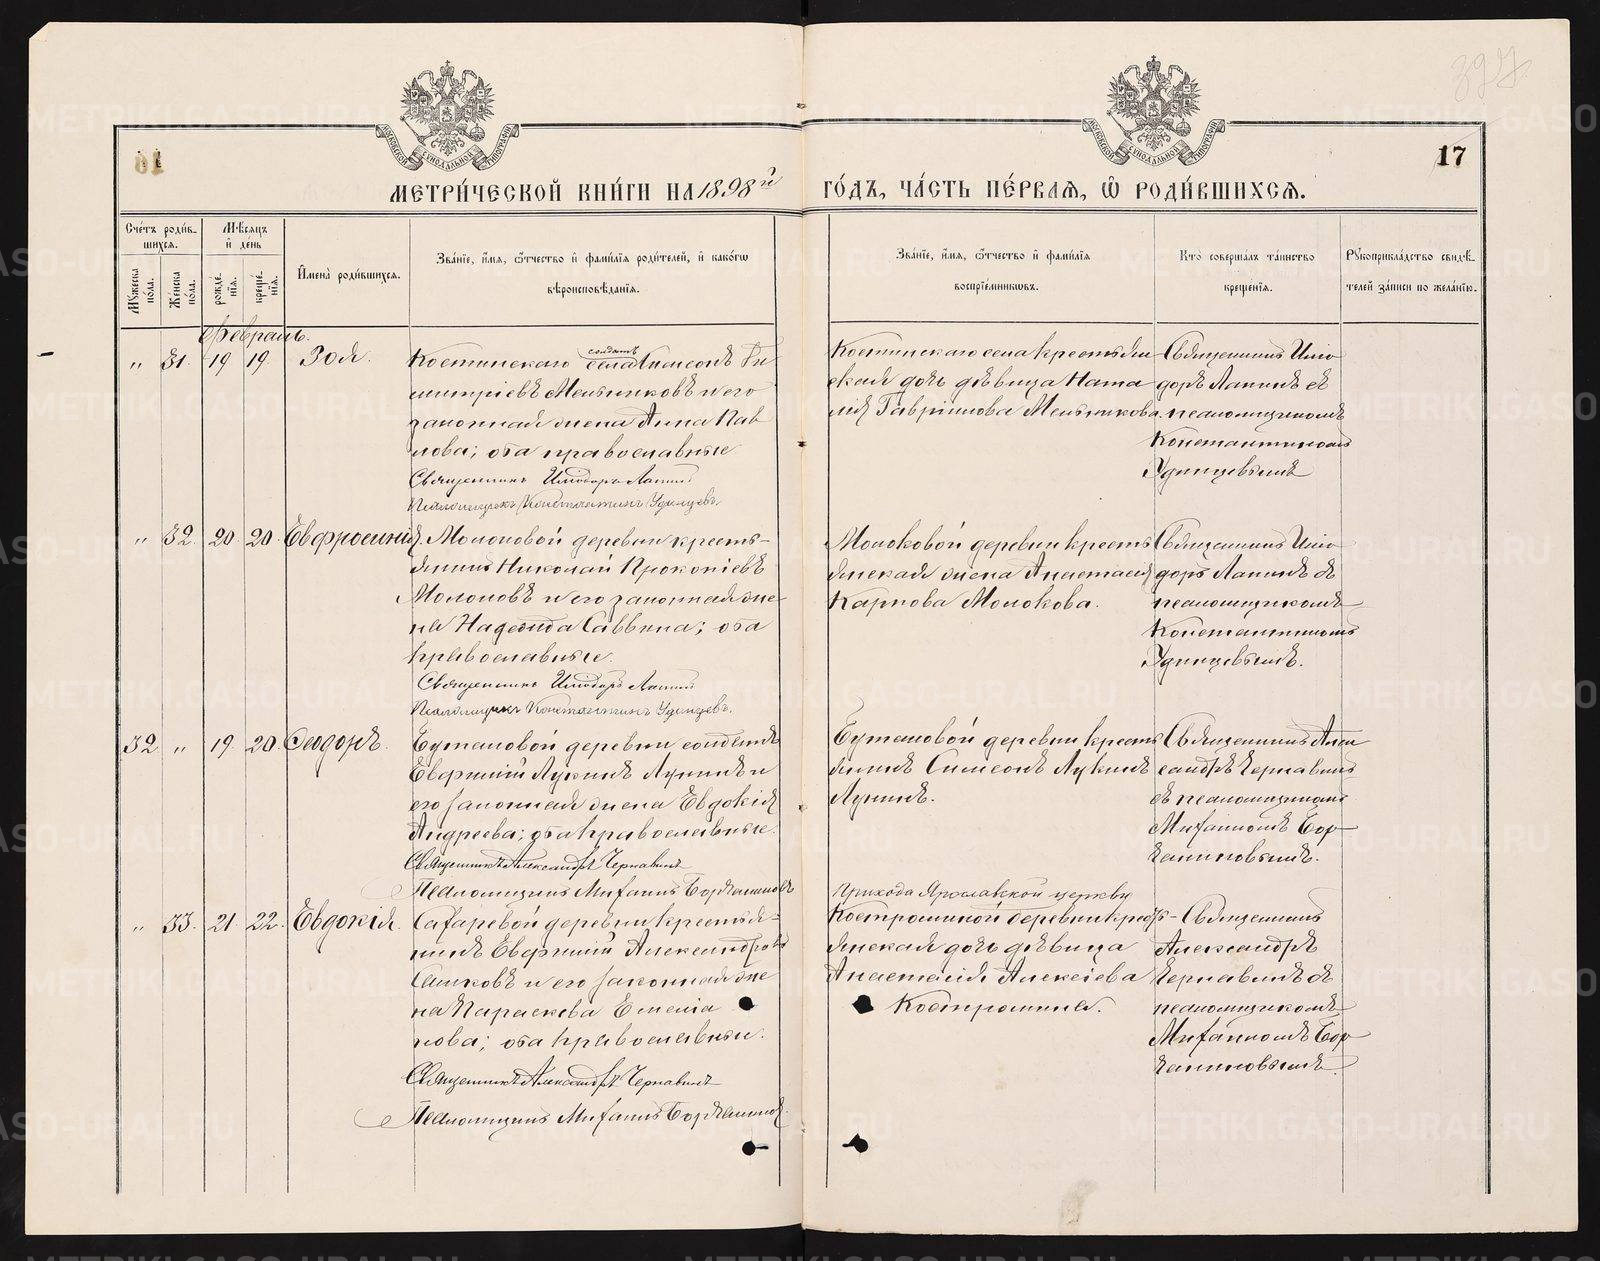 397
17
МЕТРИ́ЧЕСКОЙ КНИ́ГИ НА 1898й ГО́ДЪ, ЧА́СТЬ ПЕ́РВАѦ, Ѡ РОДИ́ВШИХСѦ.
Сче́тъ роди́в-
шихсѧ.
Мꙋжеска по́ла.
Же́нска по́ла.
Мѣ́сѧцъ
и҆ де́нь
рожде́-
нїѧ.
креще́-
нїѧ.
И҆мена̀ роди́вшихсѧ.
Зва́нїе, и҆́мѧ, ѻ҆́тчество и҆ фами́лїѧ роди́телей, и҆ како́гѡ
вѣроисповѣ́данїѧ.
Зва́нїе, и҆́мѧ, ѻ҆́тчество и҆ фами́лїѧ
воспрїе́мникѡвъ.
Кто̀ соверша́лъ та́инство
креще́нїѧ.
Рꙋкоприкла́дство свидѣ́-
телей за́писи по жела́нїю.
Февраль.
„ 31. 19 19. Зоя.
солдатъ
Костинскаго села Симеонъ Ди
митріевъ Мельниковъ и его
законная жена Анна Пав
лова; оба православные
Священникъ Илиодоръ Лапинъ
Псаломщикъ Константинъ Удинцевъ.
Костинскаго села крестьян
ская дочь дѣвица Ната
лія Гавріилова Мельникова
Священникъ Илио
доръ Лапинъ съ
псаломщикомъ
Константиномъ
Удинцевымъ
„ 32. 20. 20. Евфросинія.
Молоковой деревни кресть-
янинъ Николай Прокопіевъ
Молоковъ и его законная же-
на Надежда Саввина; оба
православные.
Священникъ Илиодоръ Лапинъ
Псаломщикъ Константинъ Удинцевъ.
Молоковой деревни кресть
янская жена Анастасія
Карпова Молокова.
Священникъ Илио
доръ Лапинъ съ
псаломщикомъ
Константиномъ
Удинцевымъ.
32 „ 19. 20. Ѳеодоръ.
деревни солдатъ
Лукинъ Лунинъ и
его законная жена Евдокія
Андреева; оба православные.
Священникъ Александръ Чернавинъ
Псаломщикъ Михаилъ
деревни кресть
янинъ Симеонъ Лукинъ
Лунинъ.
Священникъ Алек
сандръ Чернавинъ
съ псаломщикомъ
Михаиломъ
„ 33. 21. 22. Евдокія.
деревни крестья-
нинъ Александровъ
и его законная же
на Параскева
нова; оба православные.
Священникъ Александръ Чернавинъ
Псаломщикъ Михаилъ
прихода Ярославской церкви
Костромикой деревни кресть-
янская дочь дѣвица
Анастасія Алексіева
Костромина.
Священникъ
Александръ
Чернавинъ съ
псаломщикомъ
Михаиломъ
METRIKI.GASO-URAL.RU